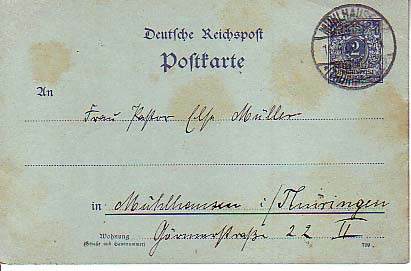 Deutsche Reichspost
Postkarte
MÜHLHAUSEN
2
An
Frau Pastor Else Müller
in Mühlhausen i/Thüringen
Wohnung
(Straße und Hausnummer)
Görmerstraße 22 II